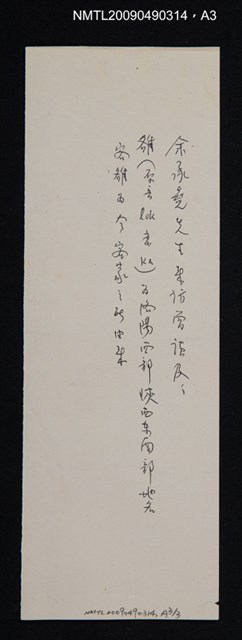 NMTL20090490314，A3
余承堯先生來訪曾談及：
雒（原音lok 或 ka）為洛陽西部陝西東南部地名
客雒為今客家之所由來
NMTL20090490314, A3/3